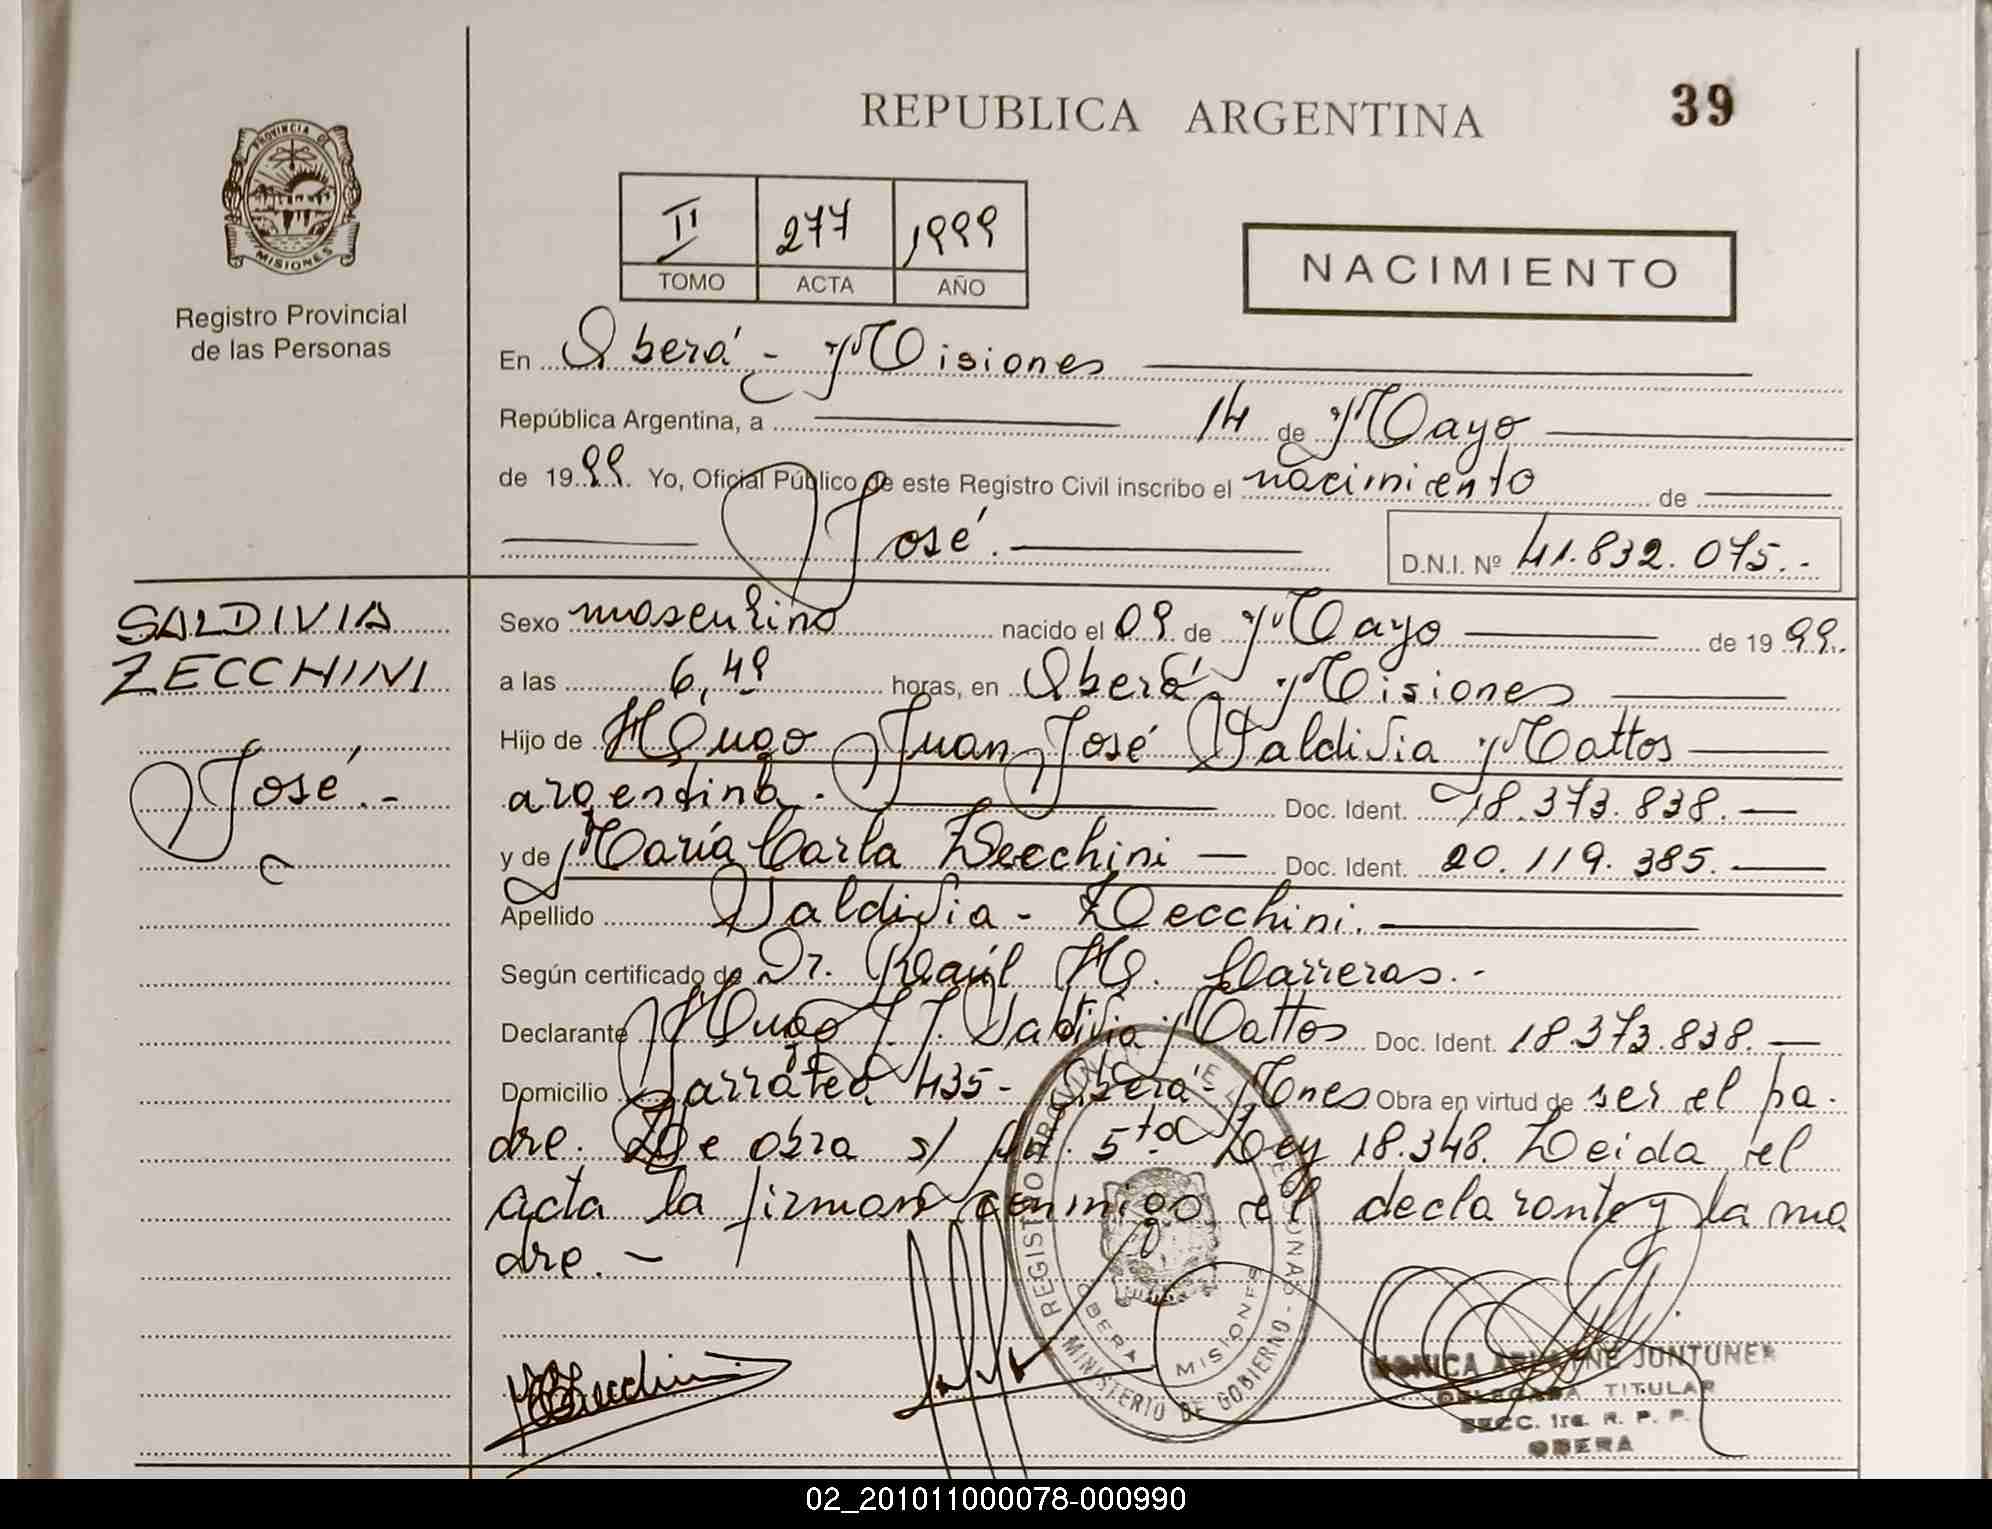 REPUBLICA ARGENTINA
39
PROVINCIA DE
MISIONES
Registro Provincial
de las Personas
II 277 1999
TOMO ACTA AÑO
NACIMIENTO
En Oberá - Misiones
República Argentina, a 14 de Mayo
de 1999 Yo, Oficial Público de este Registro Civil inscribo el nacimiento de
José.
D.N.I. Nº 41.832.075.-
SALDIVIA
ZECCHINI
José.-
Sexo masculino nacido el 09 de Mayo de 1999.
a las 6,49 horas, en Oberá, Misiones
Hijo de Hugo Juan José Saldivia Mattos
argentina. Doc. Ident. 18.373.838.
y de María Carla Zecchini Doc. Ident. 20.119.385.
Apellido Saldivia - Zecchini.
Según certificado de Dr. Raúl H. Carreras.-
Declarante Hugo J. J. Saldivia Mattos Doc. Ident. 18.373.838.
Domicilio Larratea 435 - Oberá - Mnes Obra en virtud de ser el pa-
dre. De obra s/ Art. 5to Ley 18.348. Leida el
acta la firman conmigo el declarante y la ma
dre.-
Zecchini
REGISTRO PROVINCIAL DE LAS PERSONAS - MINISTERIO DE GOBIERNO
OBERA MISIONES
MONICA JUNTUNEN
DELEGADA TITULAR
SECC. 1ra. R. P. P.
OBERA
02_201011000078-000990